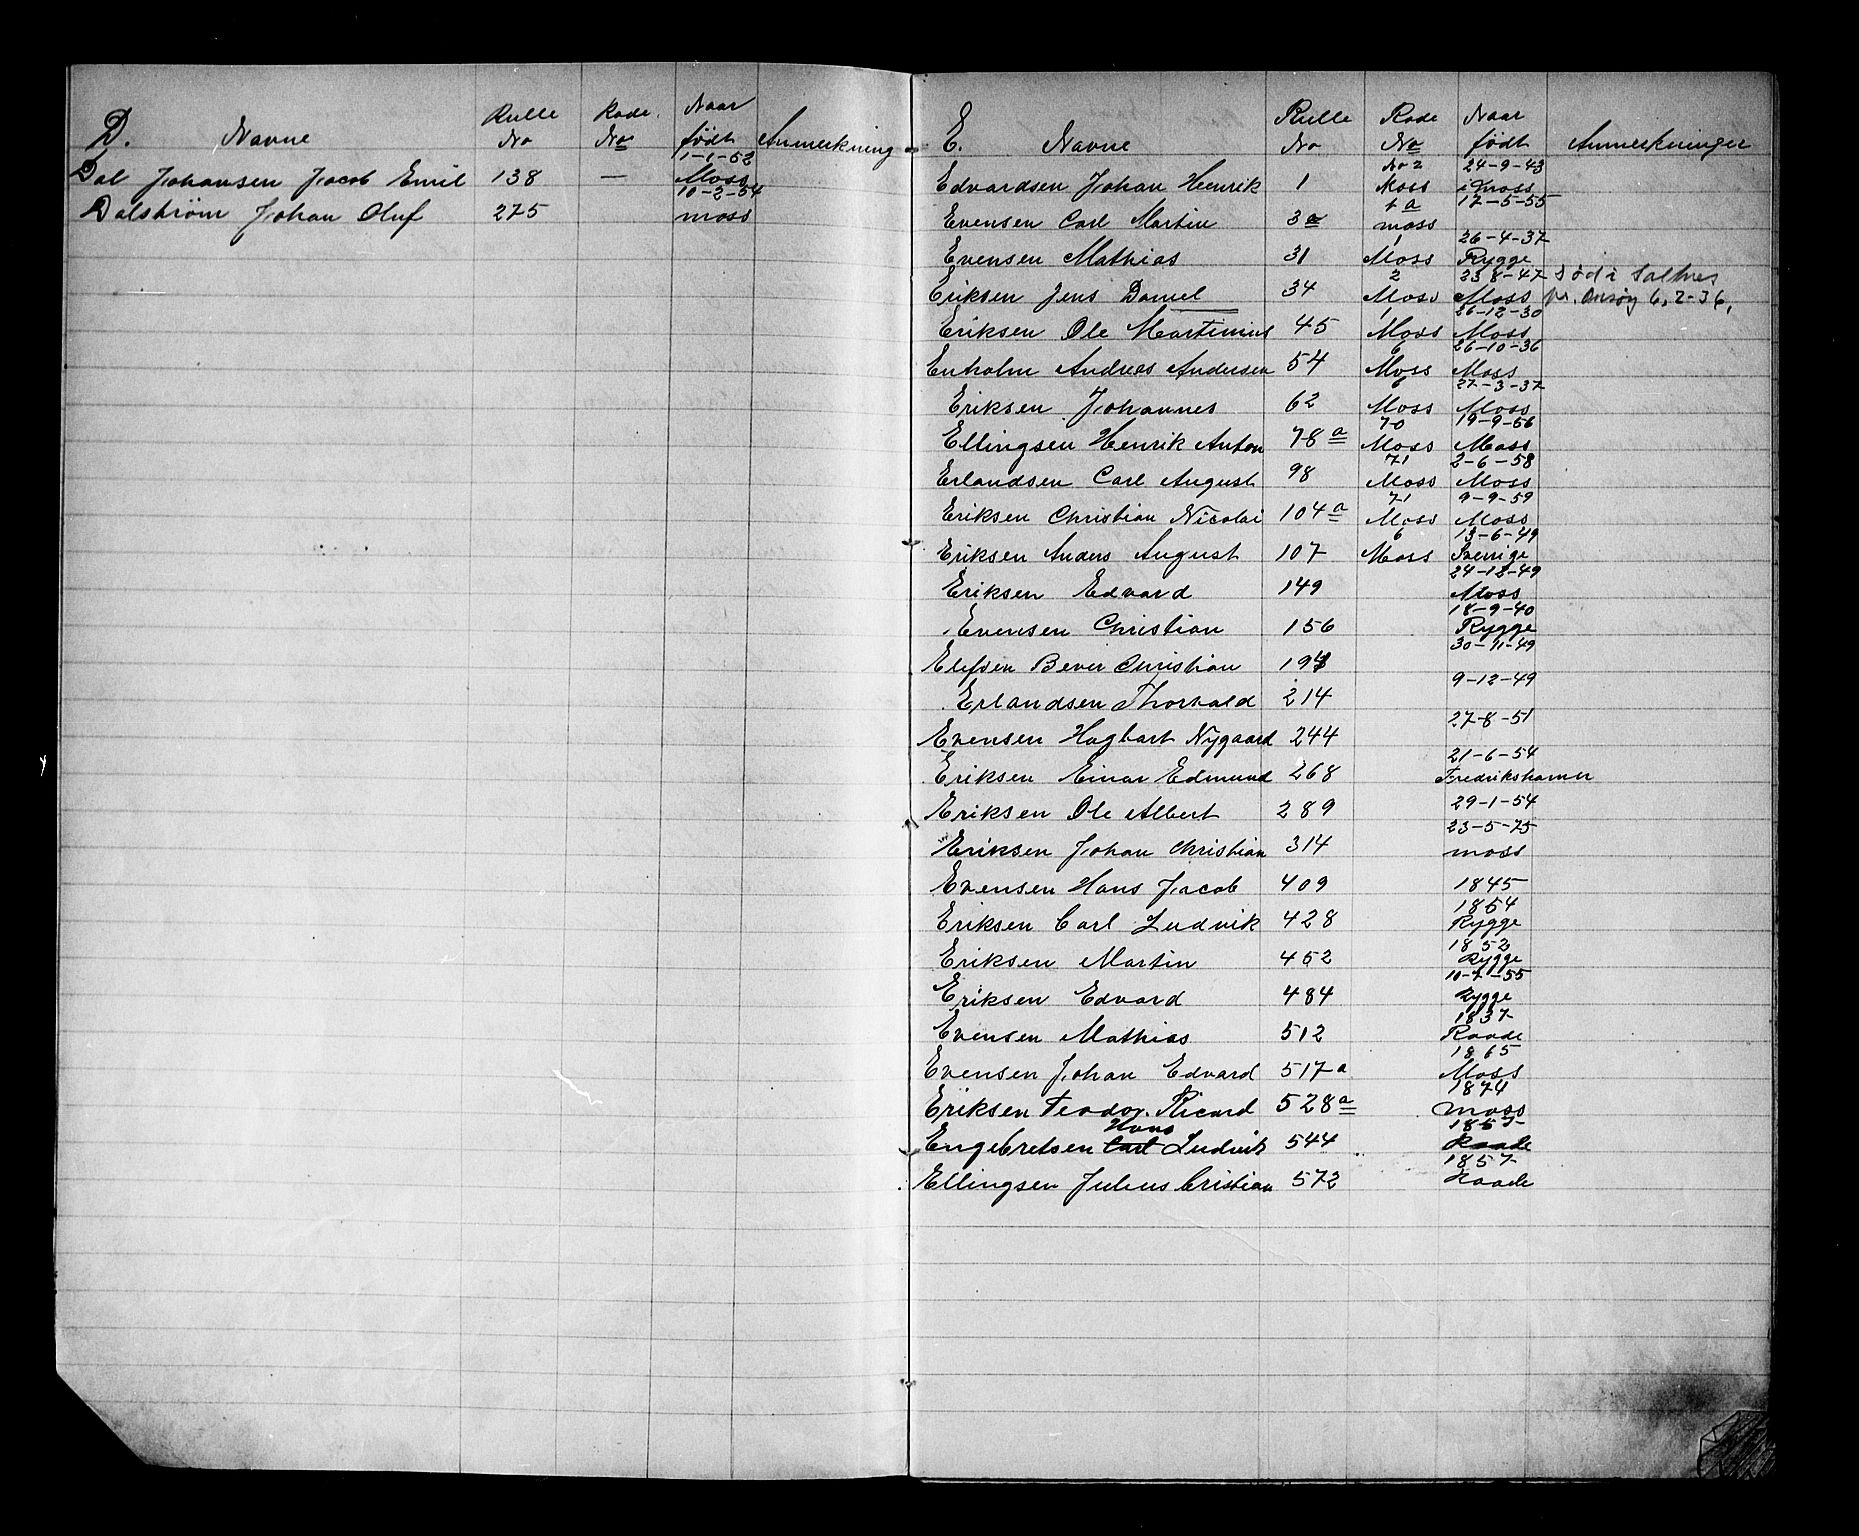 D. Navne Rulle No Rode. No Naar født Anmerkning
Dal Johansen Jacob Emil 138 — 1-1-52 Moss
Dalstrøm Johan Oluf 275 10-2-54 moss
E. Navne Rulle No Rode No Naar født Anmerkninger
Edvardsen Johan Henrik 1 No 2 Moss 24-9-43 i Moss
Evensen Carl Martin 3a 1a moss 17-5-55
Evensen Mathias 31 1 Moss 26-4-37 Rygge
Eriksen Jens Daniel 34 2 Moss 23 8-47 Moss Død i Saltnes pr. Onsøy 6,2-36,
Eriksen Ole Martinius 45 1 Moss 26-12-30 Moss
Enholm Andreas Andersen 54 6 Moss 26-10-36 Moss
Eriksen Johannes 62 6 Moss 27-3-37 Moss
Ellingsen Henrik Anton 78a 70 Moss 19-9-56 Moss
Erlandsen Carl August 98 71 Moss 2-6-58 Moss
Eriksen Christian Nicolai 104a 71 Moss 9-9-59 Moss
Eriksen Anders August 107 6 Moss 13-6-49 Sverrige
Eriksen Edvard 149 24-12-49 Moss
Evensen Christian 156 18-9-40 Rygge
Elefsen Bever Christian 194 30-11-49
Erlandsen Thorvald 214 9-12-49
Evensen Hagbart Nygaard 244 27-8-51
Eriksen Einar Edmund 268 21-6-54 Fredrikshamn
Eriksen Ole Albert 289 29-1-54
Eriksen Johan Christian 314 23-5-75 moss
Evensen Hans Jacob 409 1845
Eriksen Carl Ludvik 428 1854 Rygge
Eriksen Martin 452 1852 Rygge
Eriksen Edvard 484 10-7-55 Rygge
Evensen Mathias 512 1837 Raade
Evensen Johan Edvard 517a 1865 Moss
Eriksen Teodor Ricard 528a 1874 moss
Engebretsen Carl Hans Ludvik 544 1857 Raade
Ellingsen Julius Cristian 572 1857 Raade